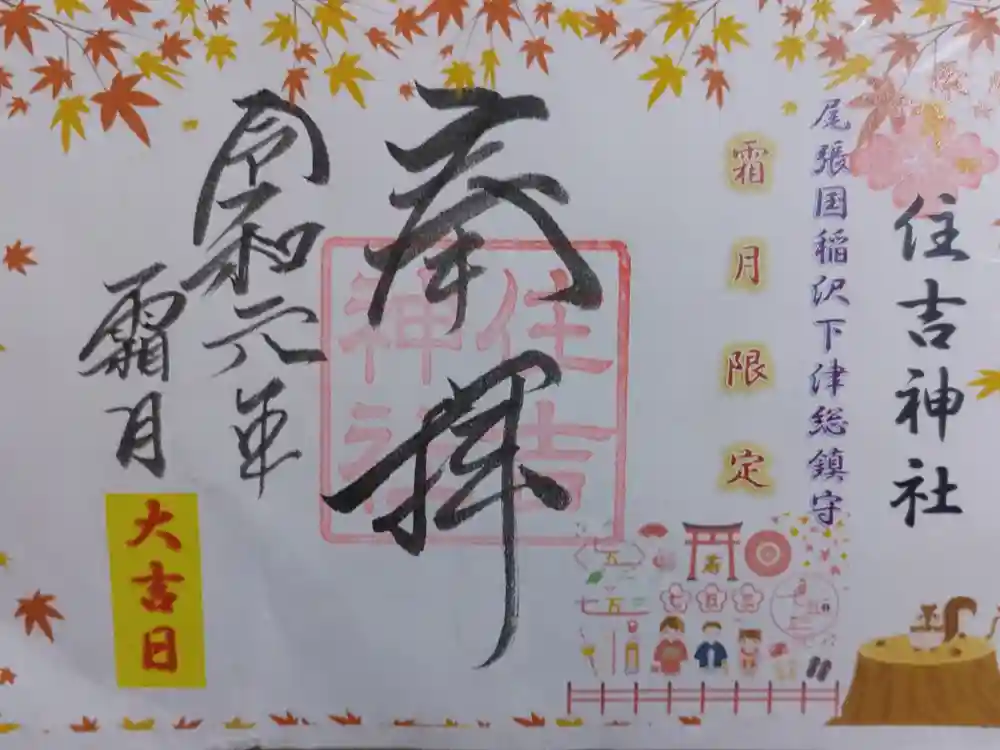 住吉神社
尾張国稲沢下津総鎮守
霜月限定
奉拝
住吉
神社
令和元年
霜月
大吉日
七五三
七五三